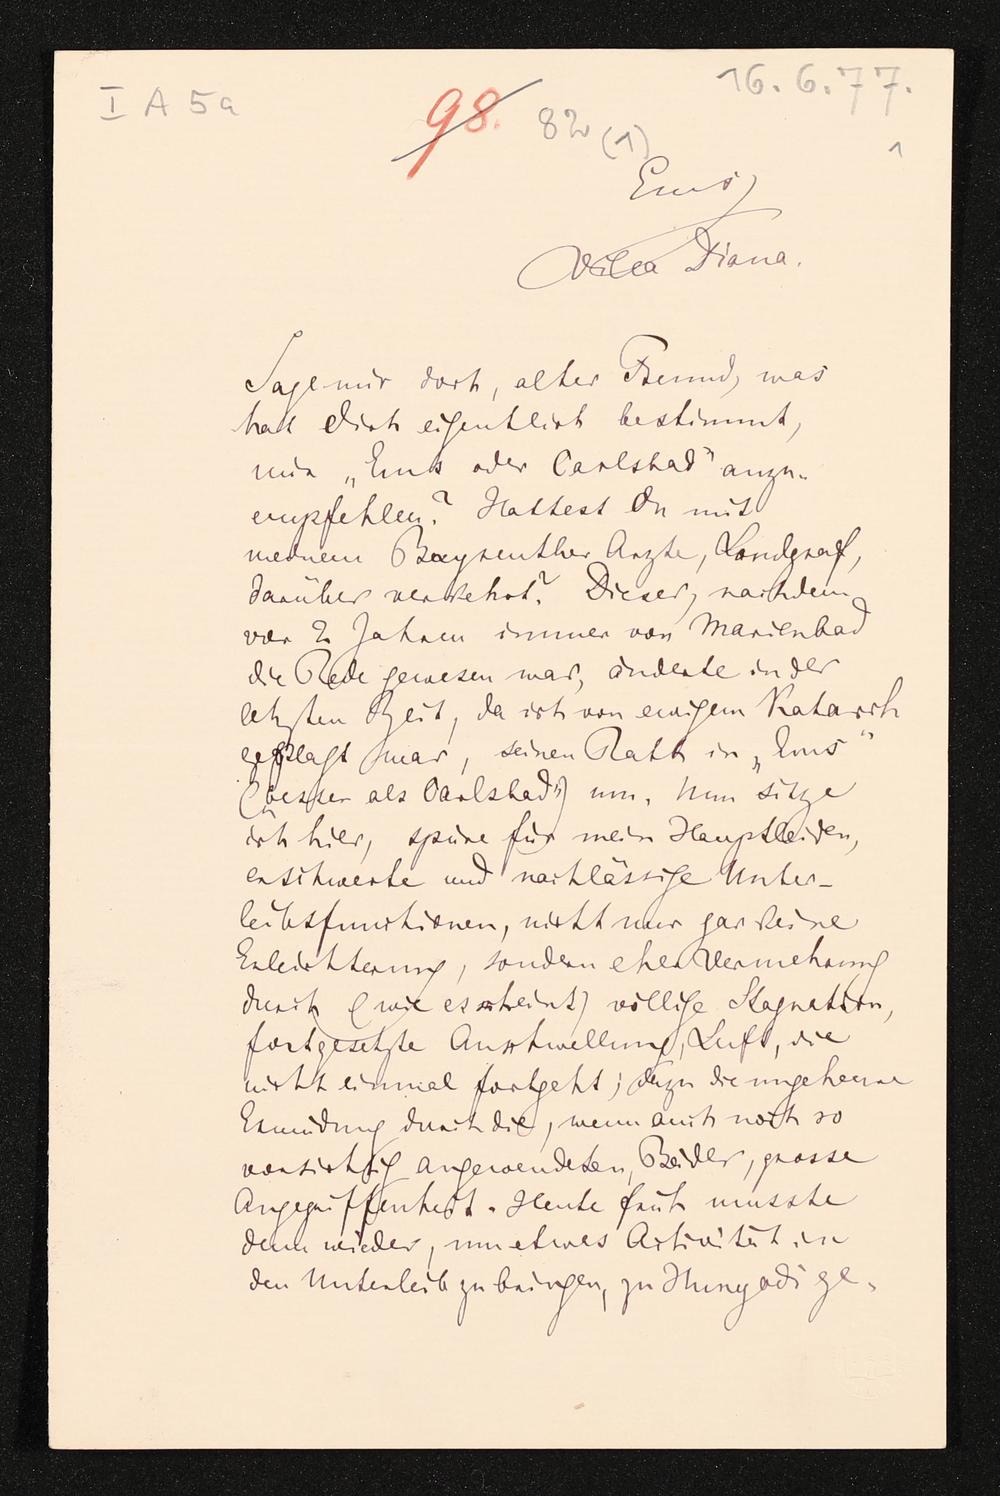 I A 5a
98.
82 (1)
16. 6. 77.
1
Ems,
Villa Diana.
Sage mir doch, alter Freund, was
hat Dich eigentlich bestimmt,
mir „Ems oder Carlsbad" anzu-
empfehlen? Hattest Du mit
meinem Bayreuther Arzte, Landgraf,
darüber verkehrt? Dieser, nachdem
vor 2 Jahren immer von Marienbad
die Rede gewesen war, änderte in der
letzten Zeit, da ich von ewigem Katarrh
geplagt war, seinen Rath in „Ems"
(besser als Carlsbad!) um. Nun sitze
ich hier, spüre für mein Hauptleiden,
erschwerte und nachlässige Unter-
leibsfunctionen, nicht nur gar keine
Erleichterung, sondern eher Vermehrung
durch (wie es scheint) völlige Stagnation,
fortgesetzte Anschwellung, Luft, die
nicht einmal fortgeht; dazu die ungeheure
Ermüdung durch die, wenn auch noch so
vorsichtig angewendeten, Bäder, grosse
Angegriffenheit. Heute früh musste
denn wieder, um etwas Activität in
den Unterleib zu bringen, zu Hunyadi ge-